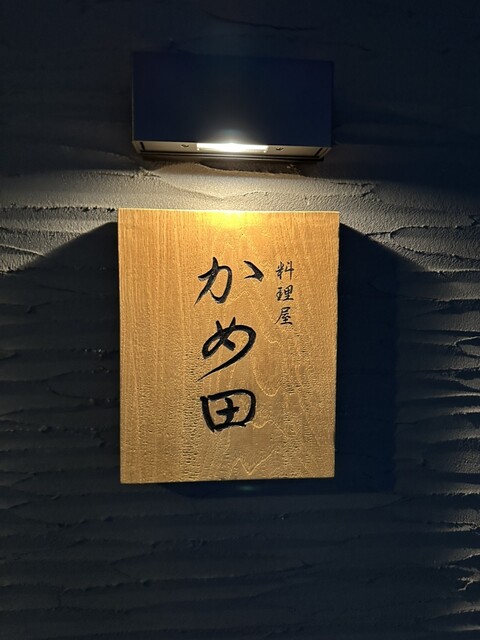 料理屋
かめ田